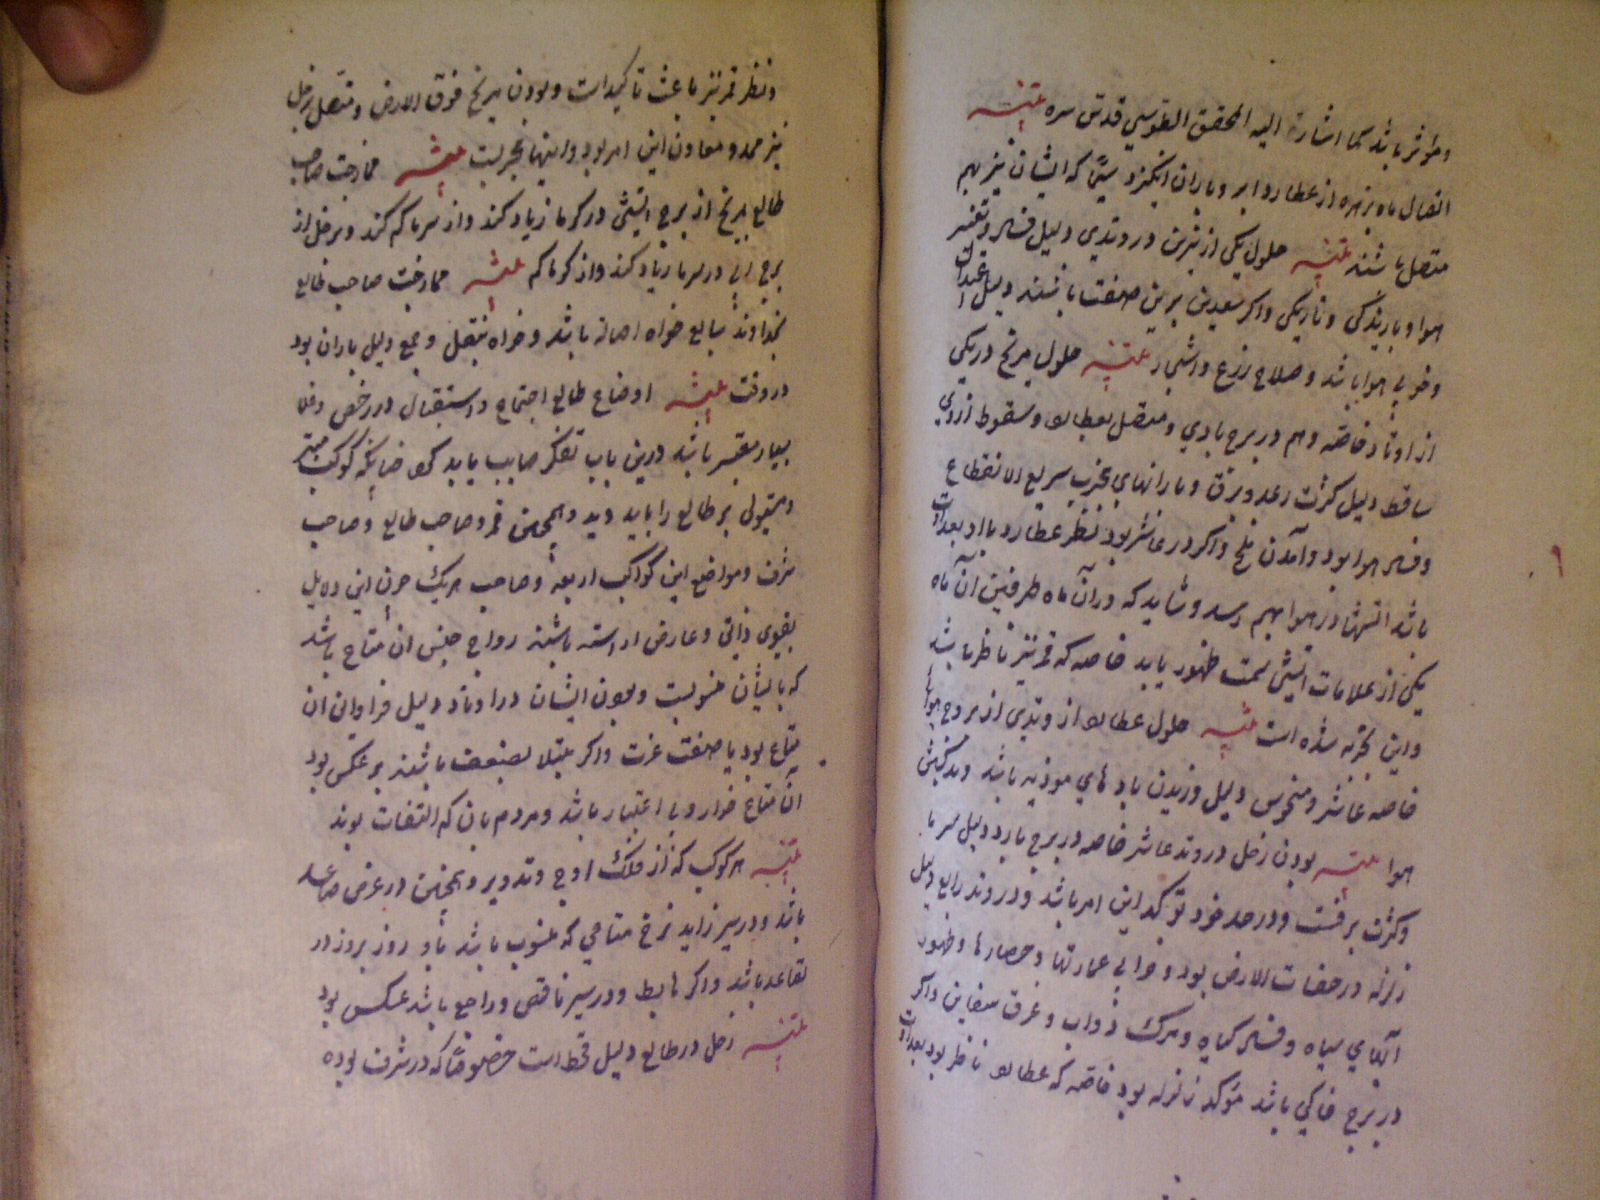 و مؤثر باشد کما اشارة الیه المحقق الطوسی قدس سره تنبیه
اتصال ماه بزهره از عطارد ابر و باران انگیزد سیما که ایشان نیز بهم
متصل باشند تنبیه حلول یکی از نیرین در وتدی دلیل فساد و تغییر
هوا و بارندگی و تاریکی و اگر سعدین برین صفت باشند دلیل اعتدال
و خوبی هوا باشد و صلاح زرع و اشجار تنبیه حلول مریخ در یکی
از اوتاد خاصه وهم در برج بادی و متصل بعطارد و سقوط از وی
ساقط دلیل کثرت رعد و برق و بارانهای مخرب سریع الانقطاع
و فساد هوا بود و آمدن ملخ و اگر در عاشر بود نظر عطارد با او بعداوت
باشد در هوا بهم رسد و شاید که در آن ماه طرفین آن ماه
یکی از علامات آتشی سمت ظهور یابد خاصه که قمر نیز ناظر باشد
و این تجربه شده است تنبیه حلول عطارد از وتدی از بروج هوا
خاصه عاشر و منحوس دلیل وزیدن بادهای موذیه باشد و
هوا تنبیه بودن زحل در وتد عاشر خاصه در برج بارد دلیل سرما
و کثرت برفست و در حد خود توکید این امر باشد و در وتد رابع دلیل
زلزله در الارض بود و خرابی عمارتها و حصارها و ظهور
آبهای سیاه و فساد گیاه و مرگ دواب و غرق سفاین و اگر
در برج خاکی باشد مؤکد زلزله بود خاصه که عطارد ناظر بود بعداوت
و نظر قمر نیز باعث تاکید است و بودن مریخ فوق الارض و متصل بزحل
نیز ممد و معاون این امر بود و اینها مجربست تنبیه ممازجت صاحب
طالع بمریخ از برج آتشی در گرما زیاد کند و از سرما کم کند و بزحل از
برج در سرما زیاد کند و از گرما کم تنبیه ممازجت صاحب طالع
بخداوند سابع خواه اصالة باشد و خواه بنقل و جمع دلیل باران بود
در وقت تنبیه اوضاع طالع اجتماع و استقبال در رخص و غلا
بسیار معتبر باشد درین باب تفکر صایب باید کرد چنانکه کوکب مبتز
و مستولی بر طالع را باید دید و همچنین قمر و صاحب طالع و صاحب
شرف و مواضع این کواکب اربعه و صاحب هر یک چون این دلایل
بقوی ذاتی و عارض آراسته باشند رواج جنس آن متاع باشد
که بایشان منسوبست و بودن ایشان در اوتاد دلیل فراوان آن
متاع بود با صفت عزت و اگر مبتلا بضعف باشند بر عکس بود
آن متاع خوار و بی اعتبار باشد و مردم بآن کم التفات بوند
تنبیه هر کوکب که از فلک اوج و تدویر و همچنین در عرض صاعد
باشد و در سیر زاید نرخ متاعی که منسوب باشد باو روز بروز در
تصاعد باشد و اگر هابط و در سیر ناقص و راجع باشد عکس بود
تنبیه زحل در طالع دلیل قحط است خصوصا که در شرف بوده